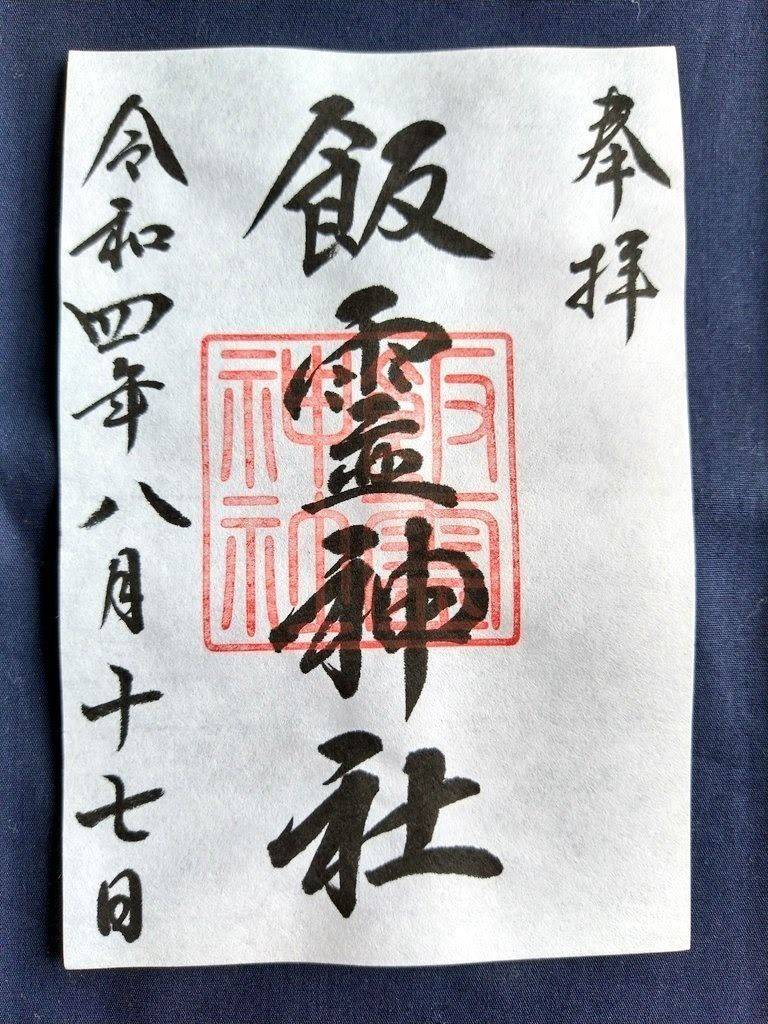 奉拝
飯靈神社
令和四年八月十七日
飯靈
神社